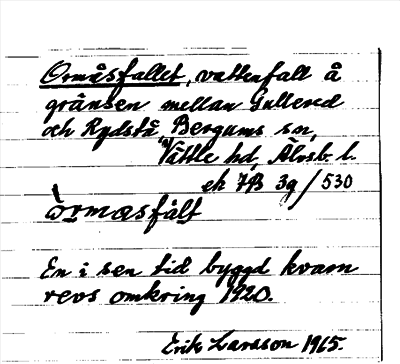 Ormåsfallet, vattenfall å
gränsen mellan Gullered
och Rydstå, Bergums sn,
Vättle hd, Älvsb. l.
ek 7B 3g/530
òrmasfàlt
En i sen tid byggd kvarn
revs omkring 1920.
Erik Larsson 1965.